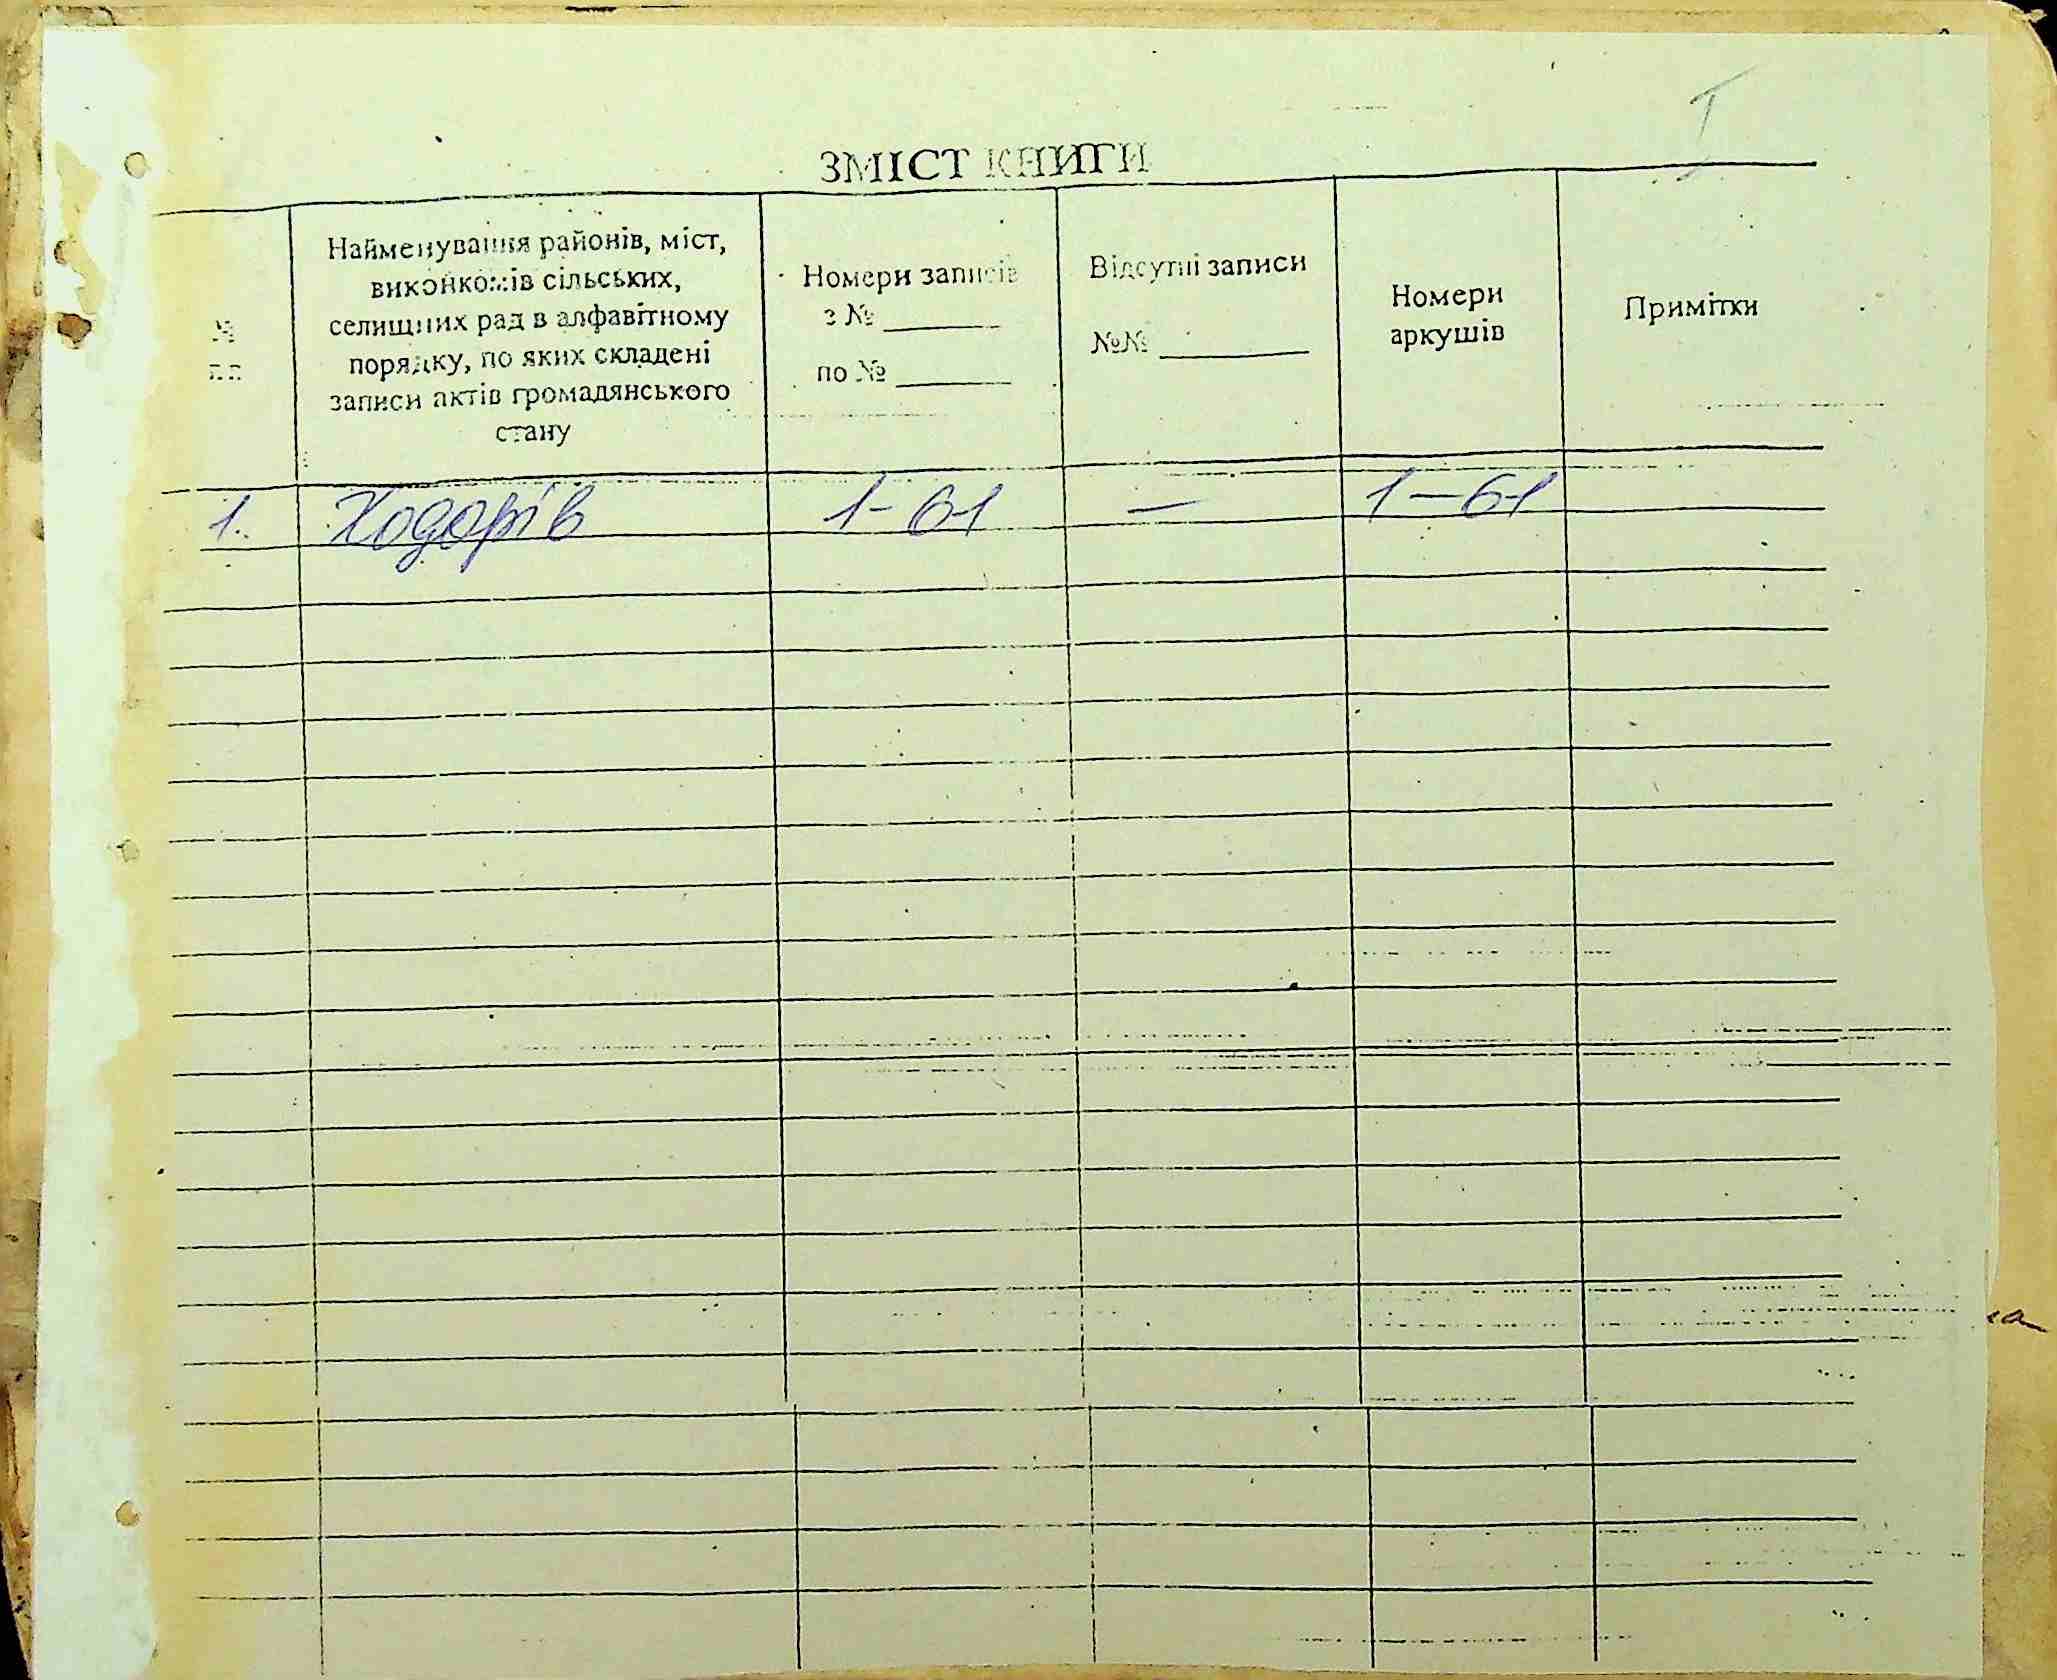 I
ЗМІСТ КНИГИ
№
п.п.
Найменування районів, міст,
виконкомів сільських,
селищних рад в алфавітному
порядку, по яких складені
записи актів громадянського
стану
Номери записів
з № ______
по № ______
Відсутні записи
№№ ______
Номери
аркушів
Примітки
1. Ходорів 1-61 — 1-61